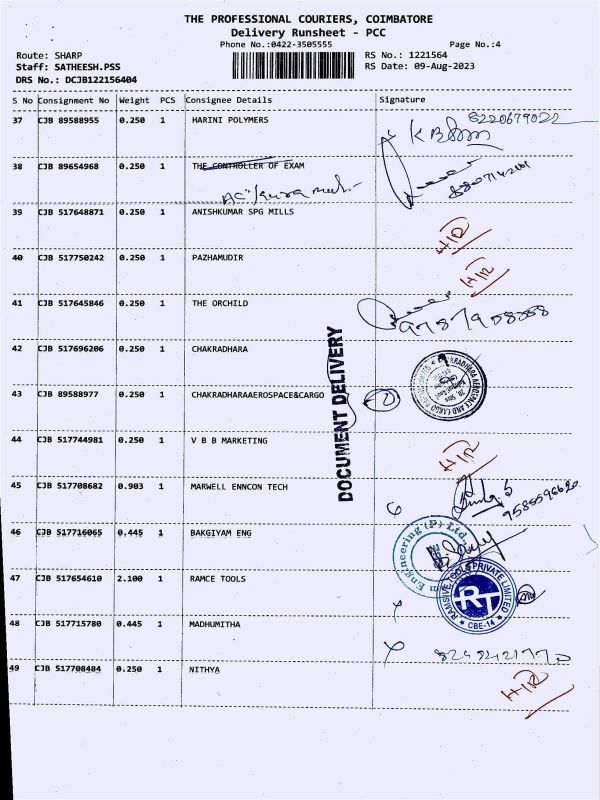 THE PROFESSIONAL COURIERS, COIMBATORE
Delivery Runsheet - PCC
Phone No.:0422-3505555 Page No.:4
Route: SHARP RS No.: 1221564
Staff: SATHEESH.PSS RS Date: 09-Aug-2023
DRS No.: DCJB122156404
S No Consignment No Weight PCS Consignee Details Signature
37 CJB 89588955 0.250 1 HARINI POLYMERS 8220679022
38 CJB 89654968 0.250 1 THE CONTROLLER OF EXAM
39 CJB 517648871 0.250 1 ANISHKUMAR SPG MILLS H/R
40 CJB 517750242 0.250 1 PAZHAMUDIR H/R
41 CJB 517645846 0.250 1 THE ORCHILD
42 CJB 517696206 0.250 1 CHAKRADHARA
43 CJB 89588977 0.250 1 CHAKRADHARAAEROSPACE&CARGO 2
44 CJB 517744981 0.250 1 V B B MARKETING H/R
45 CJB 517708682 0.903 1 MARWELL ENNCON TECH 9585596620
46 CJB 517716065 0.445 1 BAKGIYAM ENG
Engineering (P) Ltd.,
47 CJB 517654610 2.100 1 RAMCE TOOLS
RAMSIVE TOOLS PRIVATE LIMITED
RT
CBE-14
48 CJB 517715780 0.445 1 MADHUMITHA
49 CJB 517708484 0.250 1 NITHYA H/R
DOCUMENT DELIVERY